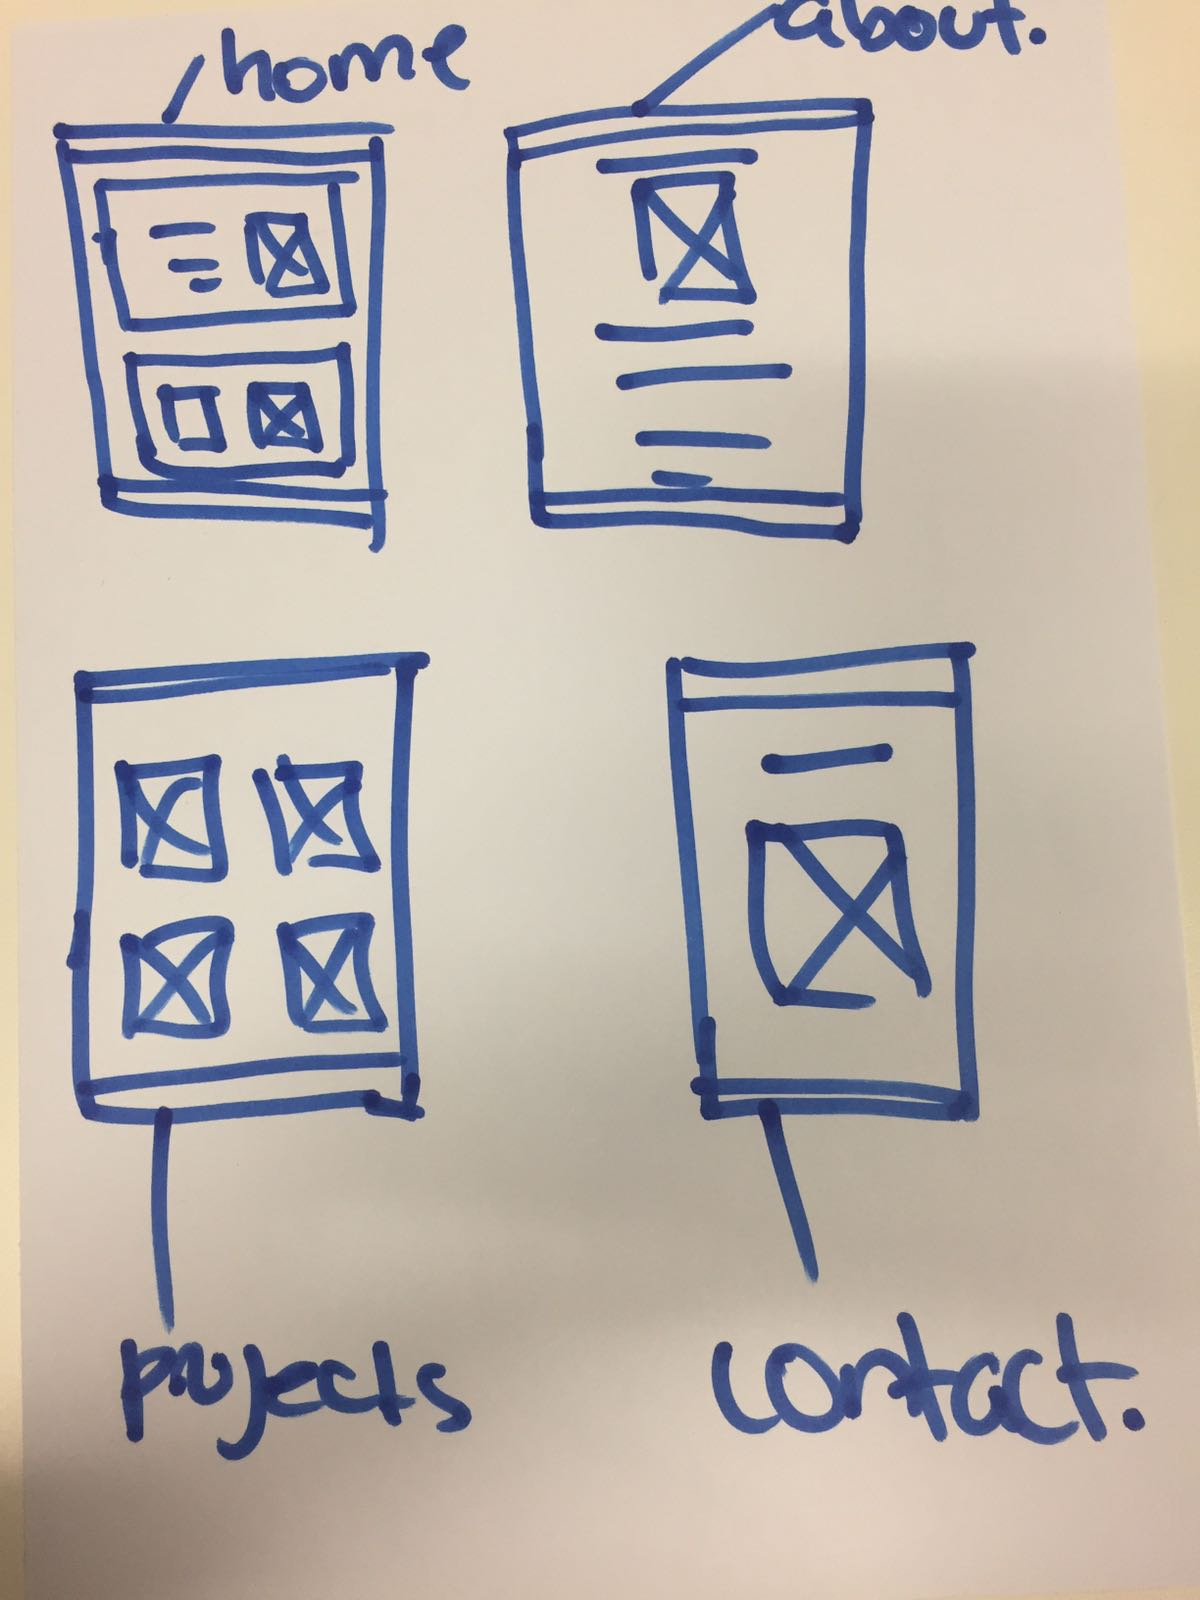 home
about.
projects
contact.